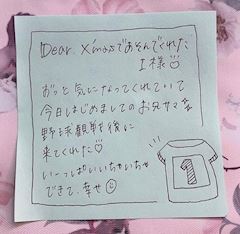 Dear. X'masであそんでくれた
I様
ずっと気になってくれていて
今日はじめましてのお兄サマ
野球観戦後に
来てくれた
いーっぱいいちゃいちゃ
できて、幸せ
1